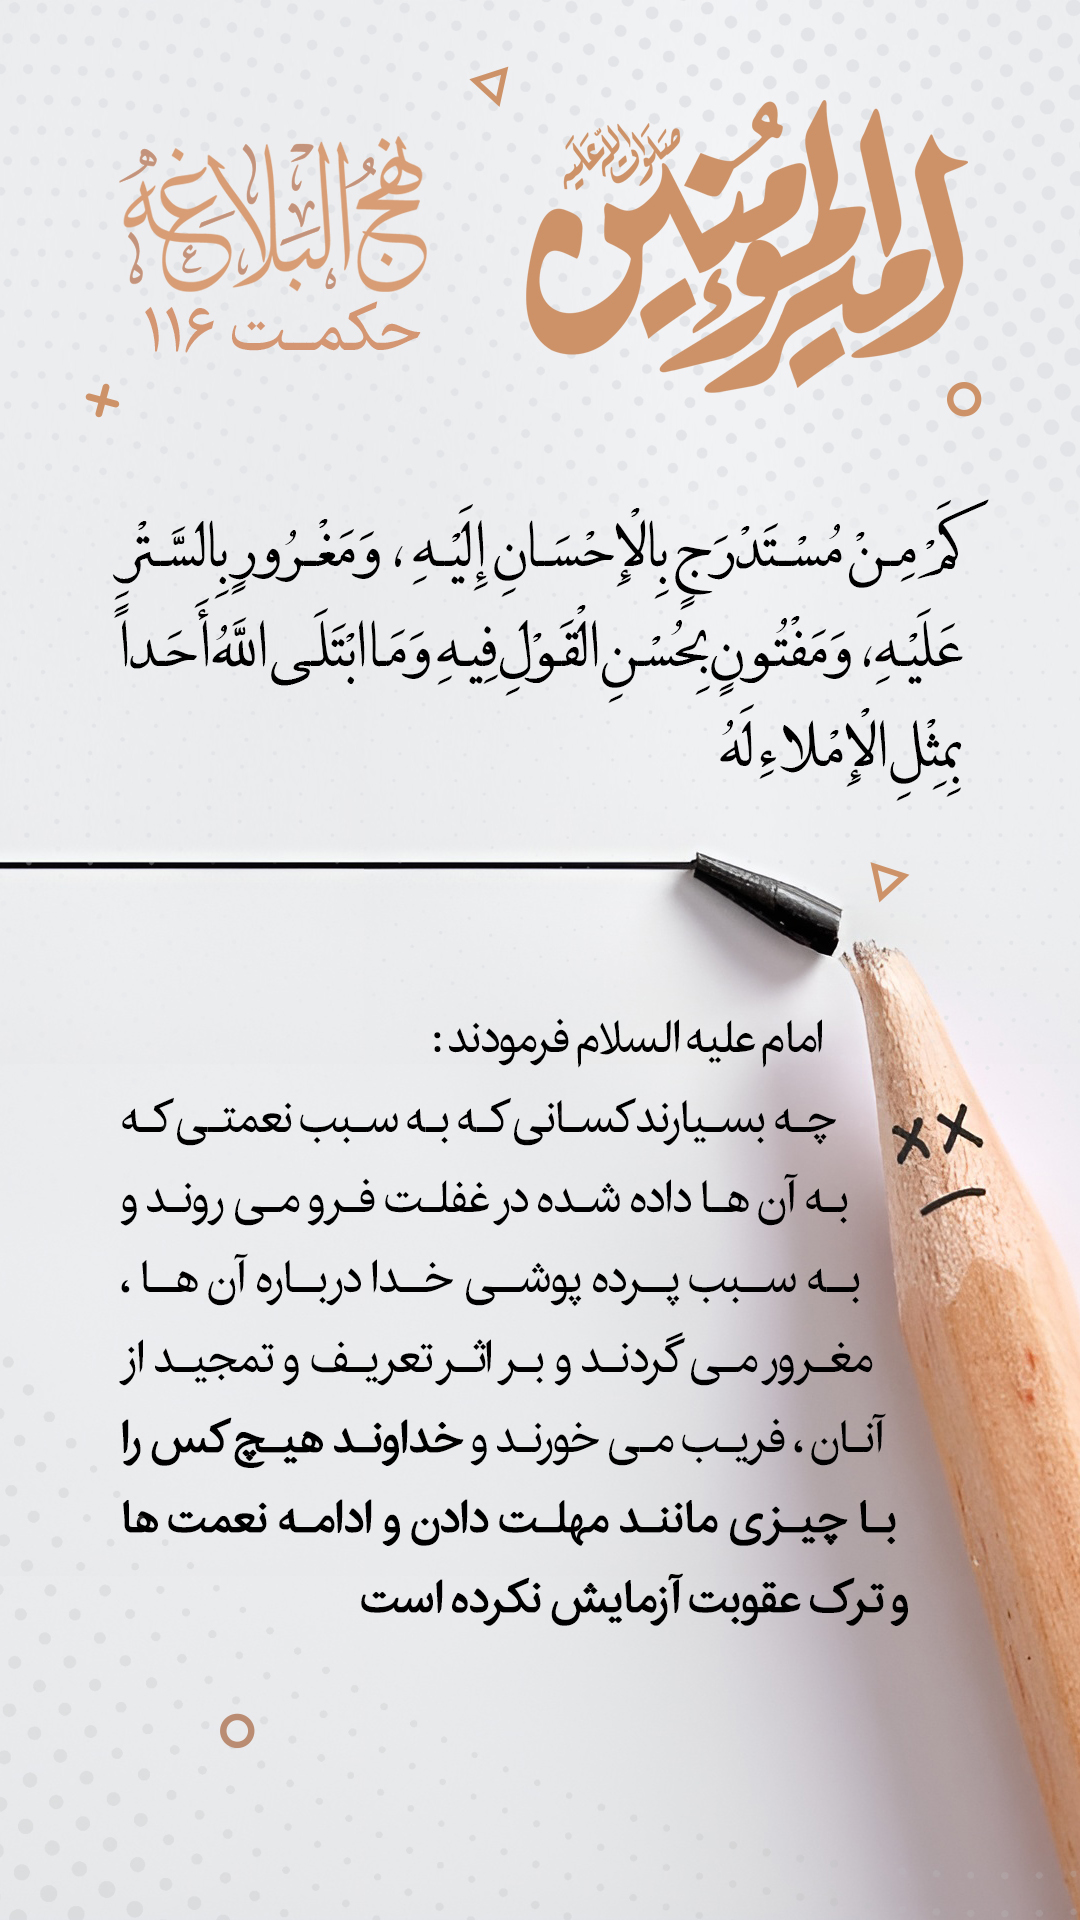 امیرالمؤمنین
صلوات الله علیه
نهج البلاغه
حکمت ۱۱۶
كَمْ مِنْ مُسْتَدْرَجٍ بِالْإِحْسَانِ إِلَيْهِ ، وَمَغْرُورٍ بِالسَّتْرِ
عَلَيْهِ، وَمَفْتُونٍ بِحُسْنِ الْقَوْلِ فِيهِ وَمَا ابْتَلَى اللَّهُ أَحَداً
بِمِثْلِ الْإِمْلاءِ لَهُ
امام علیه السلام فرمودند :
چه بسیارند کسانی که به سبب نعمتی که
به آن ها داده شده در غفلت فرو می روند و
به سبب پرده پوشی خدا درباره آن ها ،
مغرور می گردند و بر اثر تعریف و تمجید از
آنان ، فریب می خورند و خداوند هیچ کس را
با چیزی مانند مهلت دادن و ادامه نعمت ها
و ترک عقوبت آزمایش نکرده است